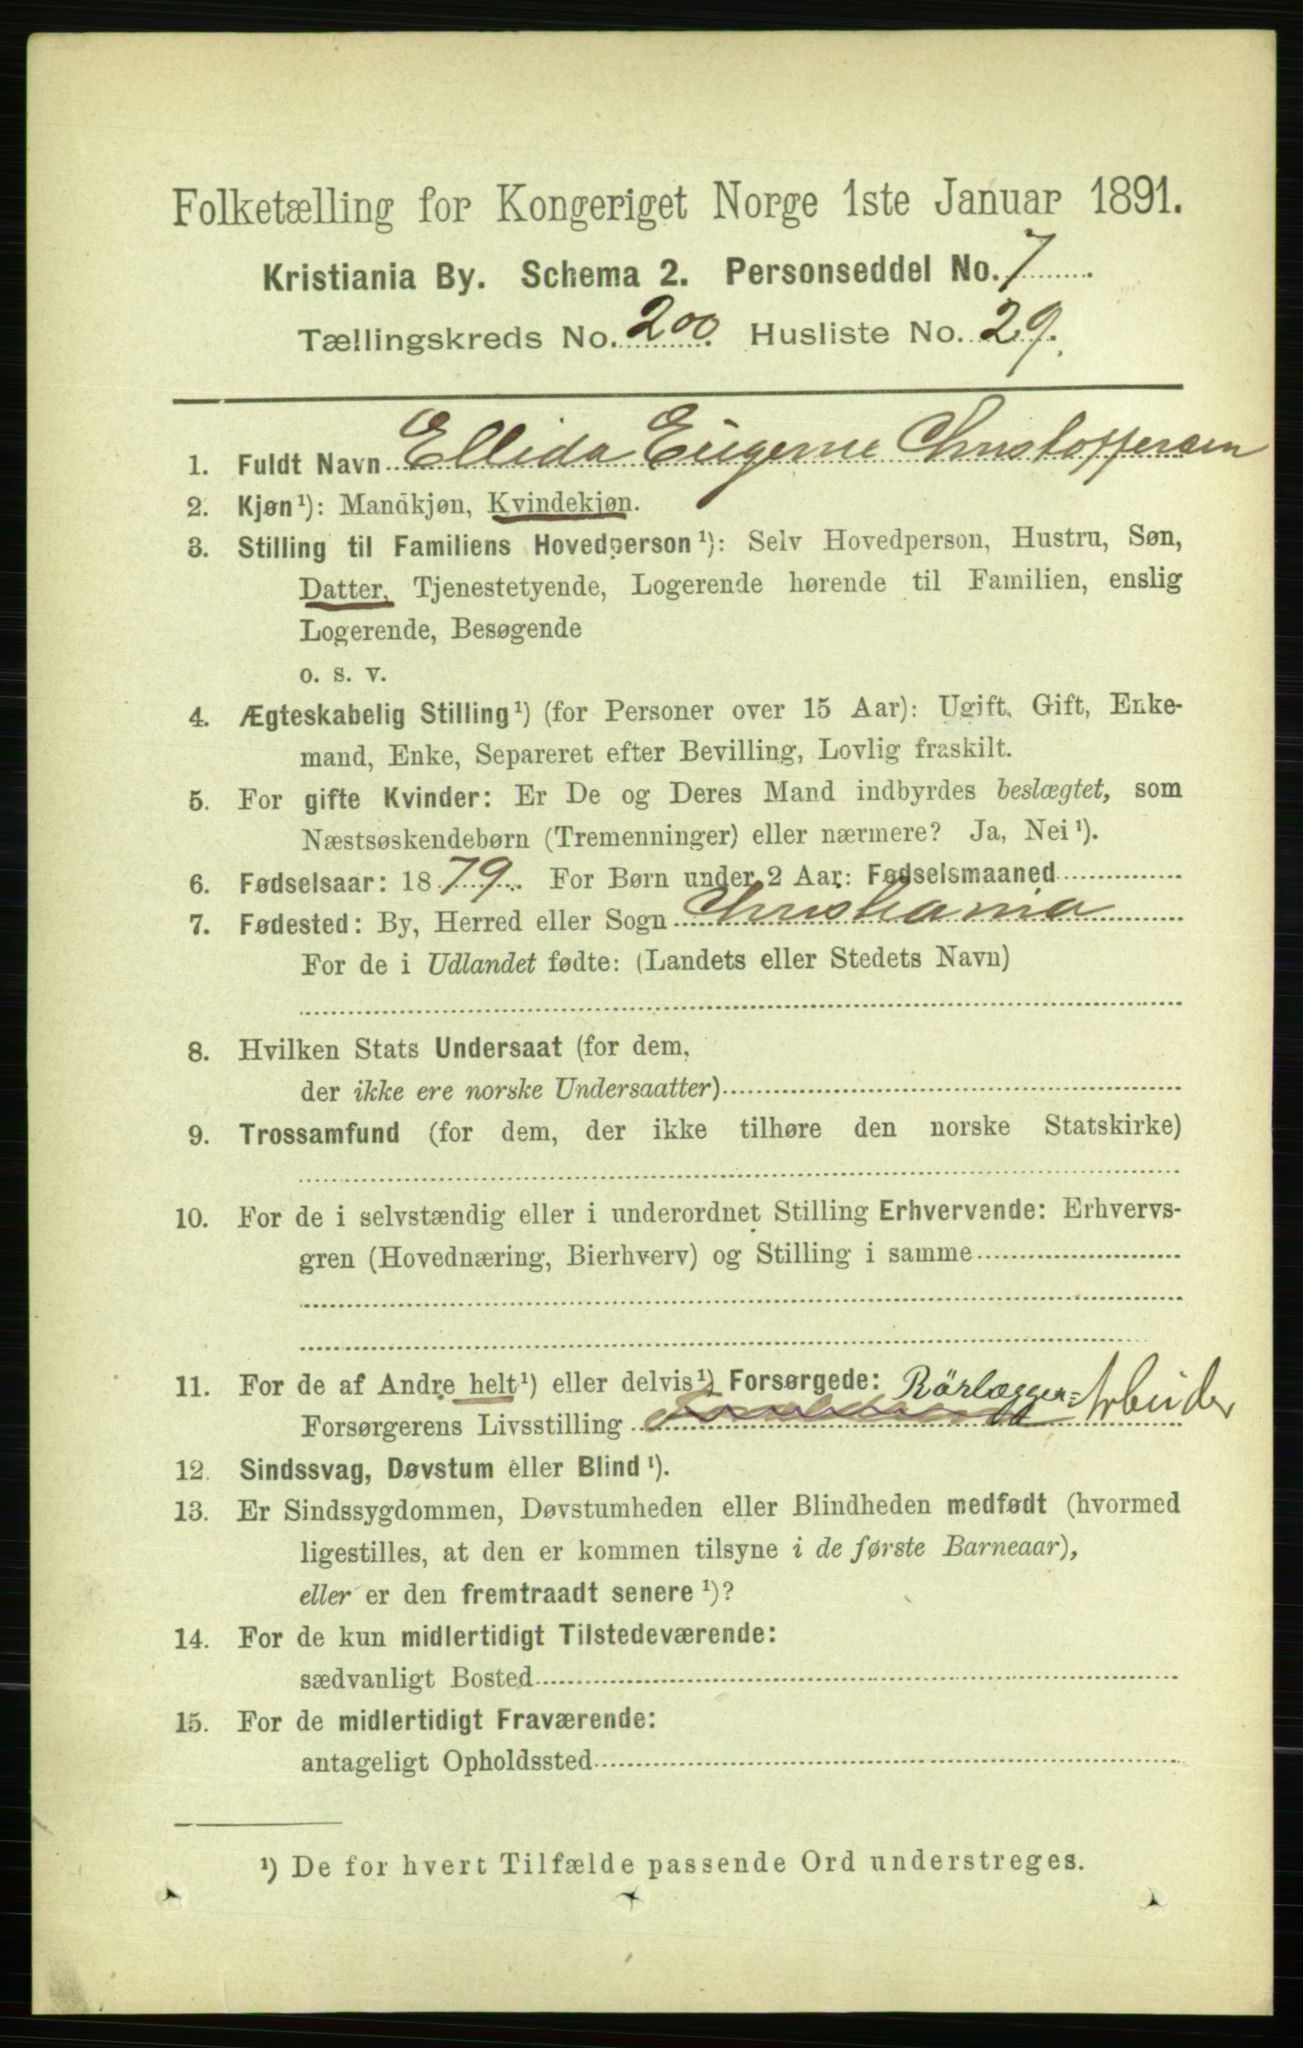 Folketælling for Kongeriget Norge 1ste Januar 1891.
Kristiania By. Schema 2. Personseddel No. 7
Tællingskreds No. 200. Husliste No. 29.
1. Fuldt Navn Ellida Eugenie Christoffersen
2. Kjøn¹): Mandkjøn, Kvindekjøn.
3. Stilling til Familiens Hovedperson¹): Selv Hovedperson, Hustru, Søn,
Datter, Tjenestetyende, Logerende hørende til Familien, enslig
Logerende, Besøgende
o. s. v.
4. Ægteskabelig Stilling¹) (for Personer over 15 Aar): Ugift, Gift, Enke-
mand, Enke, Separeret efter Bevilling, Lovlig fraskilt.
5. For gifte Kvinder: Er De og Deres Mand indbyrdes beslægtet, som
Næstsøskendebørn (Tremenninger) eller nærmere? Ja, Nei¹).
6. Fødselsaar: 1879. For Børn under 2 Aar: Fødselsmaaned
7. Fødested: By, Herred eller Sogn Christiania
For de i Udlandet fødte: (Landets eller Stedets Navn)
8. Hvilken Stats Undersaat (for dem,
der ikke ere norske Undersaatter)
9. Trossamfund (for dem, der ikke tilhøre den norske Statskirke)
10. For de i selvstændig eller i underordnet Stilling Erhvervende: Erhvervs-
gren (Hovednæring, Bierhverv) og Stilling i samme
11. For de af Andre helt¹) eller delvis¹) Forsørgede: Rörlægger=Arbeider
Forsørgerens Livsstilling
12. Sindssvag, Døvstum eller Blind¹).
13. Er Sindssygdommen, Døvstumheden eller Blindheden medfødt (hvormed
ligestilles, at den er kommen tilsyne i de første Barneaar),
eller er den fremtraadt senere¹)?
14. For de kun midlertidigt Tilstedeværende:
sædvanligt Bosted
15. For de midlertidigt Fraværende:
antageligt Opholdssted
¹) De for hvert Tilfælde passende Ord understreges.